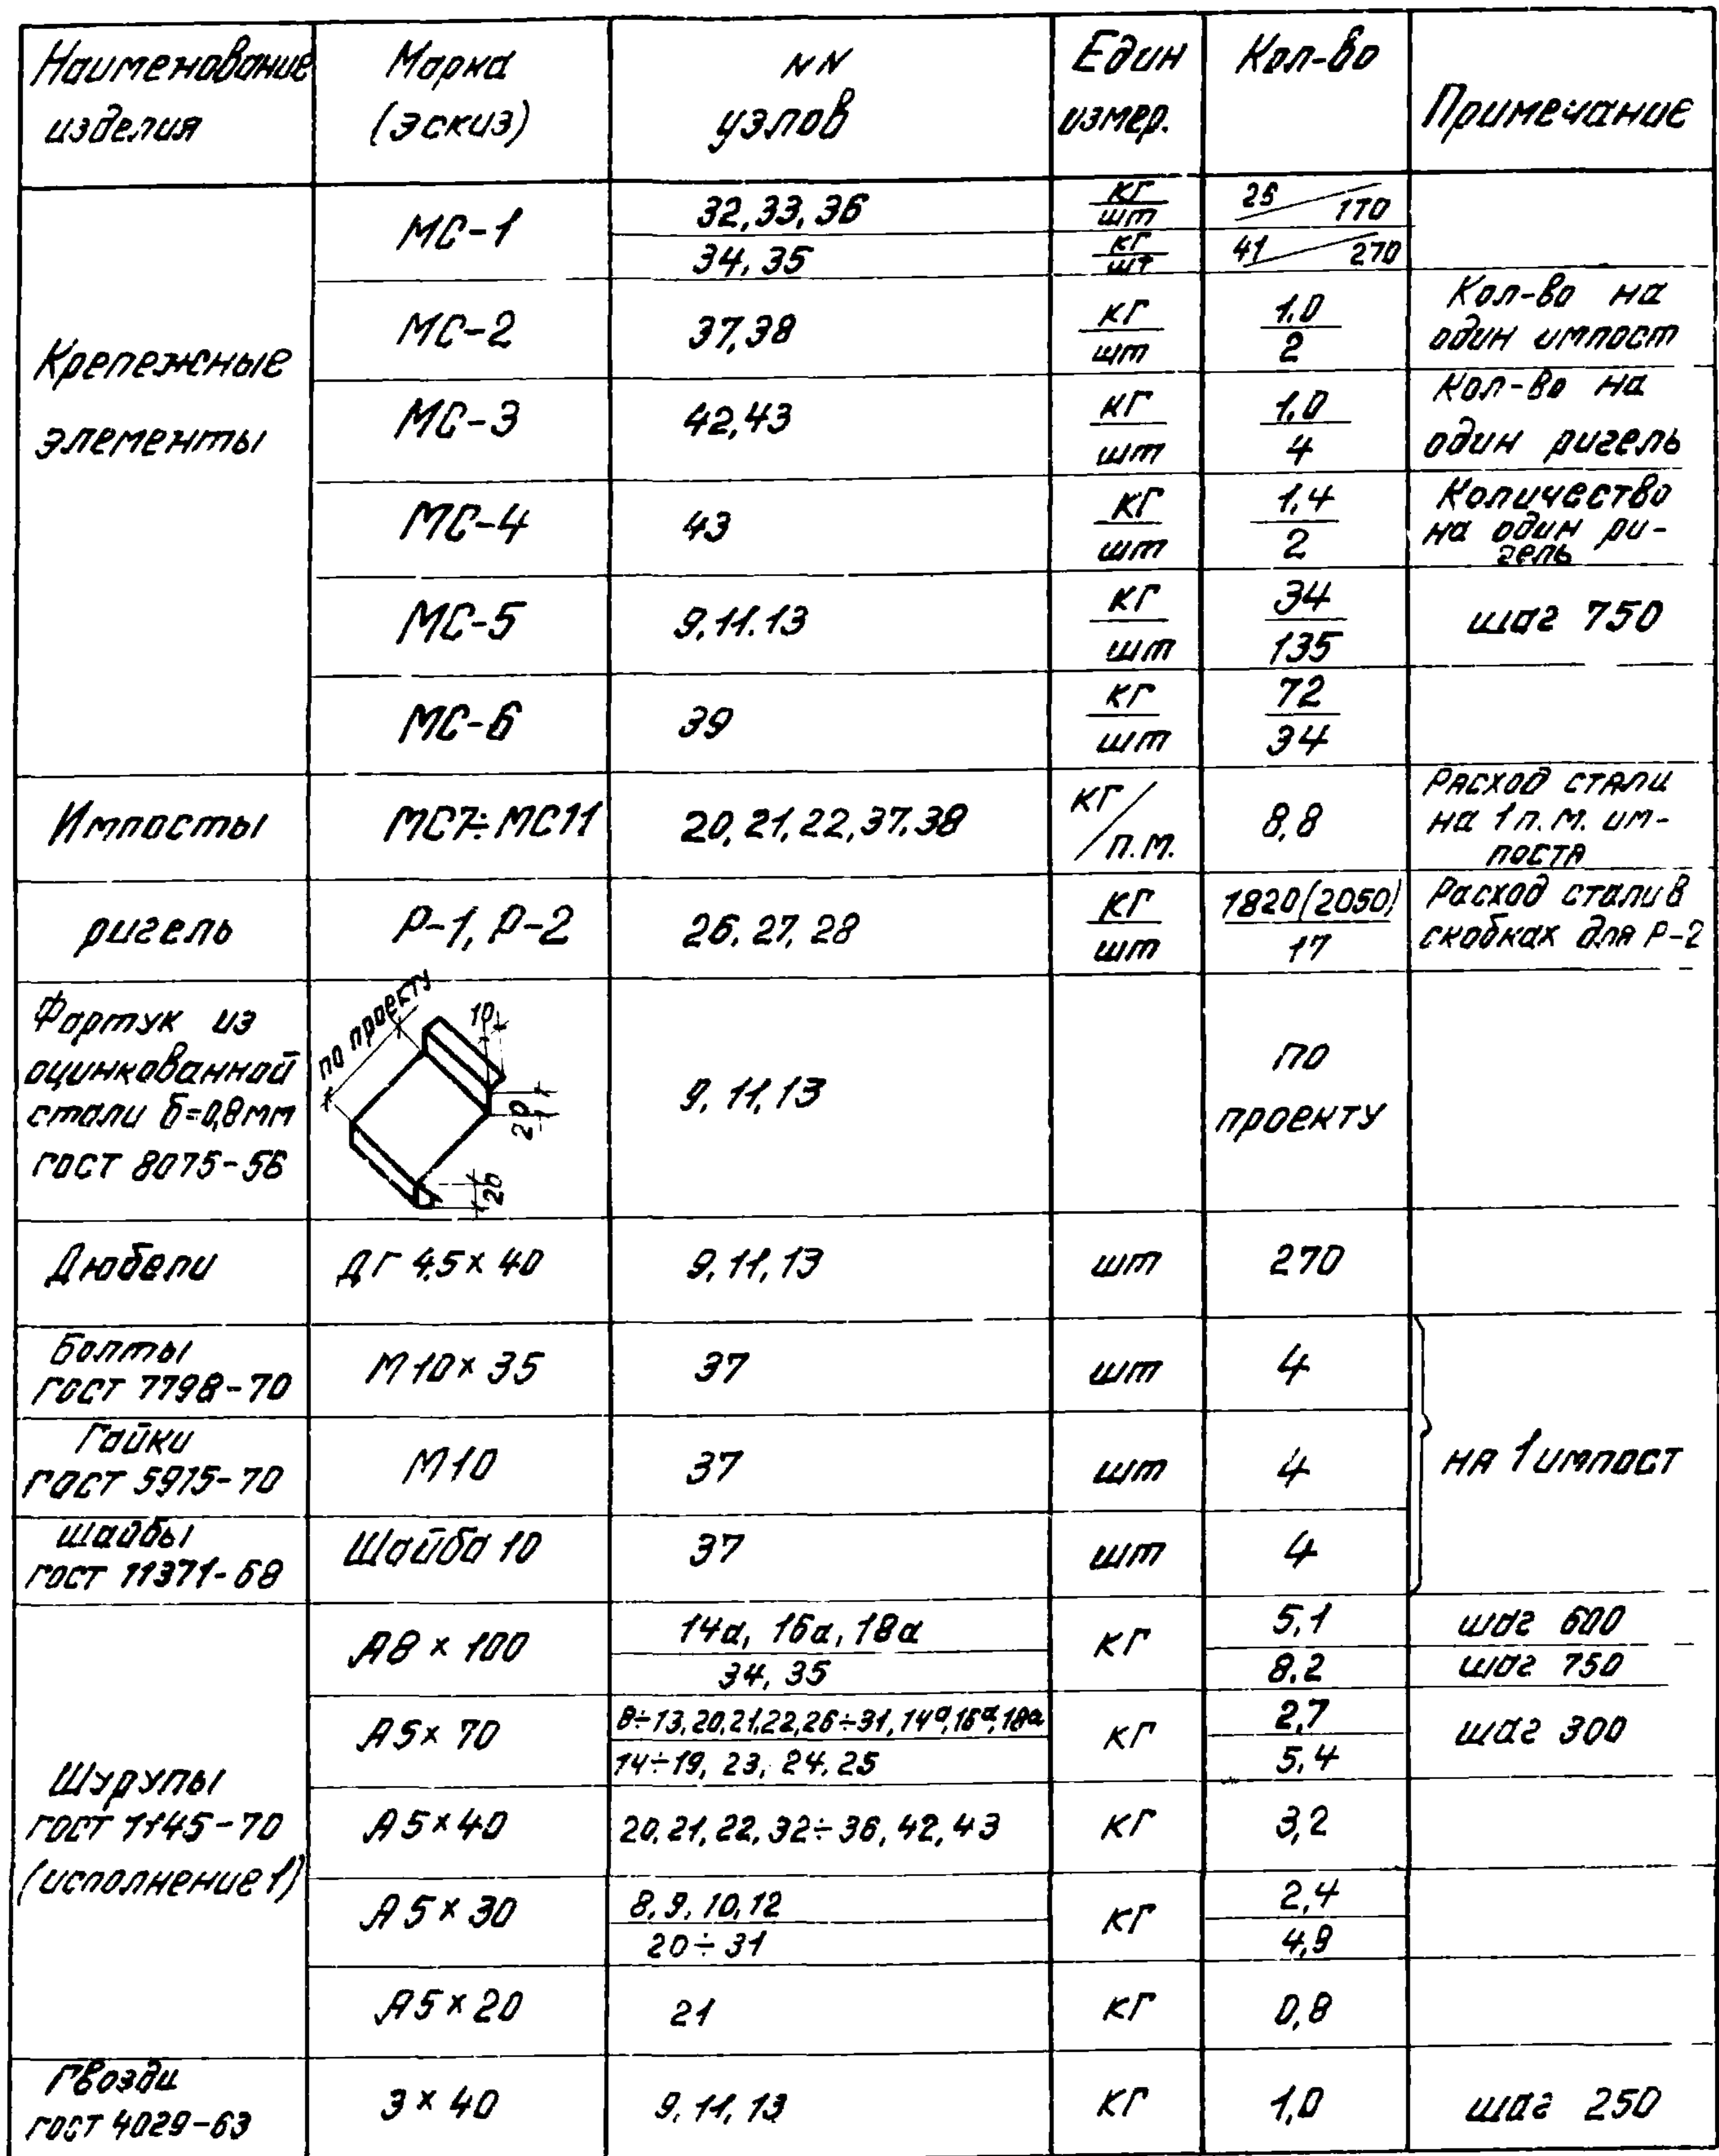 Наименование изделия
Марка (эскиз)
NN узлов
Един измер.
Кол-во
Примечание
Крепежные элементы
МС-1
32,33,36
кг/шт
25/170
34,35
кг/шт
41/270
МС-2
37,38
кг/шт
1,0/2
Кол-во на
один импост
МС-3
42,43
кг/шт
1,0/4
Кол-во на
один ригель
МС-4
43
кг/шт
1,4/2
Количество
на один ри-
гель
МС-5
9,11.13
кг/шт
34/135
шаг 750
МС-6
39
кг/шт
72/34
Импосты
МС7÷МС11
20,21,22,37.38
кг/п.м.
8,8
Расход стали
на 1 п.м. им-
поста
ригель
Р-1, Р-2
26,27,28
кг/шт
1820(2050)/17
Расход стали в
скобках для Р-2
Фартук из
оцинкованной
стали δ=0,8мм
гост 8075-56
по проекту
10
20
20
9,11,13
по
проекту
Дюбели
ДГ 4,5×40
9,11,13
шт
270
Болты
гост 7798-70
М10×35
37
шт
4
Гайки
гост 5915-70
М10
37
шт
4
на 1 импост
шайбы
гост 11371-68
Шайба 10
37
шт
4
Шурупы
гост 1145-70
(исполнение 1)
А8×100
14а, 16а, 18а
34, 35
кг
5,1
8,2
шаг 600
шаг 750
А5×70
8÷13,20,21,22,26÷31,14а,16а,18а
14÷19, 23, 24, 25
кг
2,7
5,4
шаг 300
А5×40
20,21,22,32÷36,42,43
кг
3,2
А5×30
8,9,10,12
20÷31
кг
2,4
4,9
А5×20
21
кг
0,8
Гвозди
гост 4029-63
3×40
9,11,13
кг
1,0
шаг 250